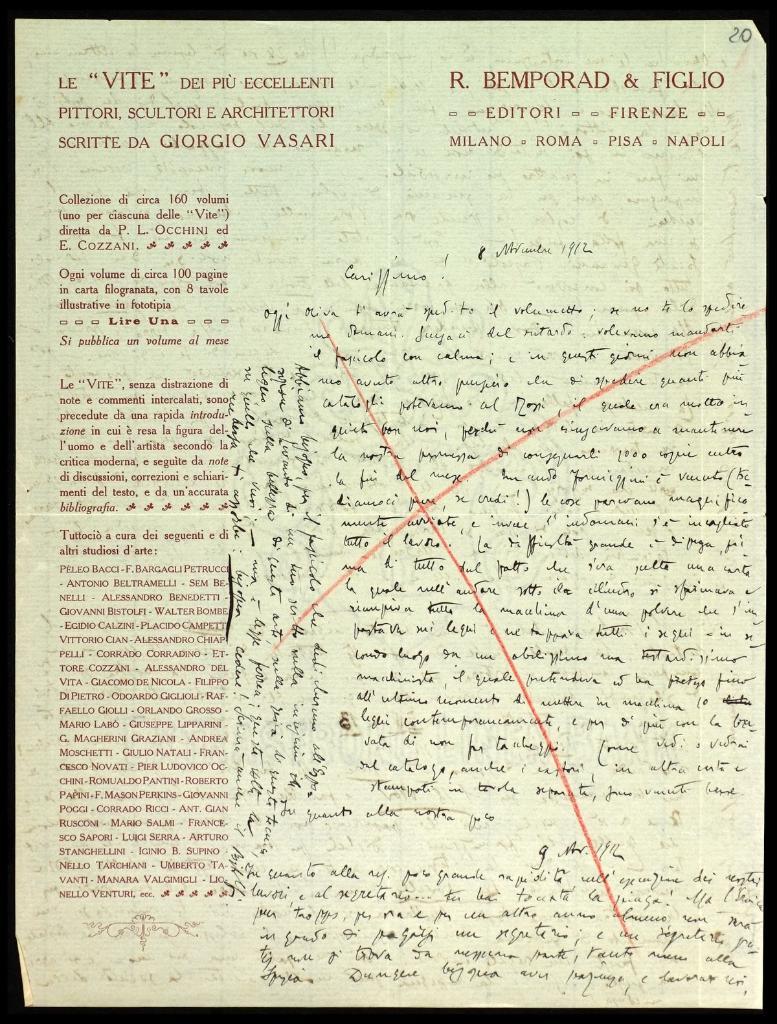 20
LE "VITE" DEI PIÙ ECCELLENTI
PITTORI, SCULTORI E ARCHITETTORI
SCRITTE DA GIORGIO VASARI
R. BEMPORAD & FIGLIO
EDITORI FIRENZE
MILANO ▫ ROMA ▫ PISA ▫ NAPOLI
Collezione di circa 160 volumi
(uno per ciascuna delle "Vite")
diretta da P. L. OCCHINI ed
E. COZZANI.
Ogni volume di circa 100 pagine
in carta filogranata, con 8 tavole
illustrative in fototipia
Lire Una
Si pubblica un volume al mese
Le "VITE", senza distrazione di
note e commenti intercalati, sono
precedute da una rapida introdu-
zione in cui è resa la figura del-
l'uomo e dell'artista secondo la
critica moderna, e seguite da note
di discussioni, correzioni e schiari-
menti del testo, e da un'accurata
bibliografia.
Tuttociò a cura dei seguenti e di
altri studiosi d'arte:
PÈLEO BACCI - F. BARGAGLI PETRUCCI
- ANTONIO BELTRAMELLI - SEM BE-
NELLI - ALESSANDRO BENEDETTI -
GIOVANNI BISTOLFI - WALTER BOMBE
- EGIDIO CALZINI - PLACIDO CAMPETTI
VITTORIO CIAN - ALESSANDRO CHIAP-
PELLI - CORRADO CORRADINO - ET-
TORE COZZANI - ALESSANDRO DEL
VITA - GIACOMO DE NICOLA - FILIPPO
DI PIETRO - ODOARDO GIGLIOLI - RAF-
FAELLO GIOLLI - ORLANDO GROSSO -
MARIO LABÒ - GIUSEPPE LIPPARINI -
G. MAGHERINI GRAZIANI - ANDREA
MOSCHETTI - GIULIO NATALI - FRAN-
CESCO NOVATI - PIER LUDOVICO OC-
CHINI - ROMUALDO PANTINI - ROBERTO
PAPINI - F. MASON PERKINS - GIOVANNI
POGGI - CORRADO RICCI - ANT. GIAN
RUSCONI - MARIO SALMI - FRANCE-
SCO SAPORI - LUIGI SERRA - ARTURO
STANGHELLINI - IGINIO B. SUPINO -
NELLO TARCHIANI - UMBERTO TA-
VANTI - MANARA VALGIMIGLI - LIO-
NELLO VENTURI, ecc.
8 Novembre 1912
Carissimo!
Oggi Oliva t'avrà spedito il volumetto; se no te lo spedirem
mo domani. Scusaci del ritardo: volevamo mandarti
il fascicolo con calma; e in questi giorni non abbia
mo avuto altro pensiero che di spedire quanti più
cataloghi potevamo al Rossi, il quale era molto in
quieto con noi, perché non riuscivamo a mantenere
la nostra promessa di consegnarli 1000 copie entro
la fin del mese. Quando Formiggini è venuto (te
diamoci pure, se credi!) le cose parevano magnifica
mente avviate, e invece l'indomani s'è incagliato
tutto il lavoro. La difficoltà grande è dipesa, pri
ma di tutto dal fatto che s'era scelta una carta
la quale nell'andare sotto il cilindro si sfarinava e
riempiva tutta la macchina d'una polvere che s'im
pastava sui legni e ne tappava tutti i segni - in se
condo luogo da un abilissimo ma testardissimo
macchinista il quale pretendeva ed ha preteso fino
all'ultimo momento di mettere in macchina 10
legni contemporaneamente, e per di più con la tro
vata di non far tacheggi. Come vedi o vedrai
dal catalogo, anche i cartoni, in altra carta e
stampati in tavole separate, sono venuti bene
quanto alla nostra poco
9 Nov. 1912
In quanto alla poco grande rapidità nell'esecuzione dei nostri
lavori e al segretario... tu hai toccata la piaga! Ma l'Eroica
pur troppo, per ora e per un altro anno almeno non sarà
in grado di pagarsi un segretario; e un segretario gra
tis non si trova da nessuna parte, tanto meno alla
Spezia. Dunque bisogna aver pazienza, e lavorar noi,
Abbiamo bisogno, per il fascicolo che dedicheremo all'Espo-
sizione di Levanto di un tuo scritto sulla
legno, sulla bellezza di quest'arte, sulla
su quello che vuoi; ma è legge ferrea; questa volta la
bisogna cedere!